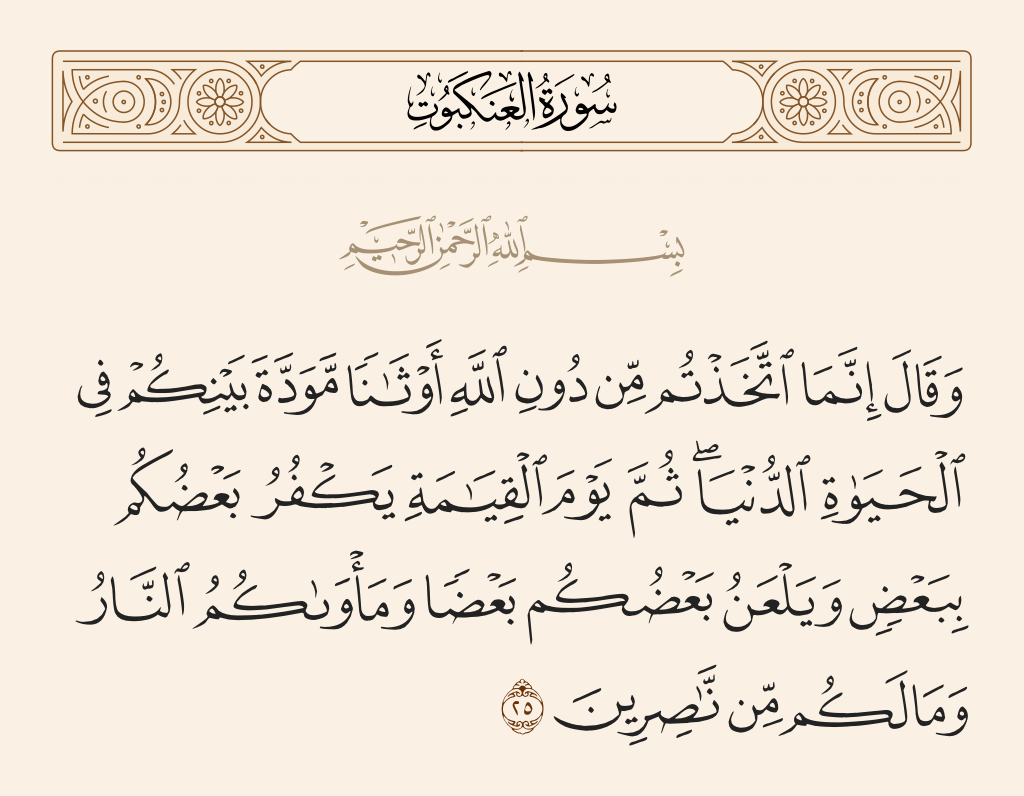 سُورَةُ العَنكَبُوتِ
بِسْمِ ٱللَّهِ ٱلرَّحْمَٰنِ ٱلرَّحِيمِ
وَقَالَ إِنَّمَا ٱتَّخَذْتُم مِّن دُونِ ٱللَّهِ أَوْثَـٰنًا مَّوَدَّةَ بَيْنِكُمْ فِى
ٱلْحَيَوٰةِ ٱلدُّنْيَا ۖ ثُمَّ يَوْمَ ٱلْقِيَـٰمَةِ يَكْفُرُ بَعْضُكُم
بِبَعْضٍ وَيَلْعَنُ بَعْضُكُم بَعْضًا وَمَأْوَىٰكُمُ ٱلنَّارُ
وَمَا لَكُم مِّن نَّـٰصِرِينَ ٢٥